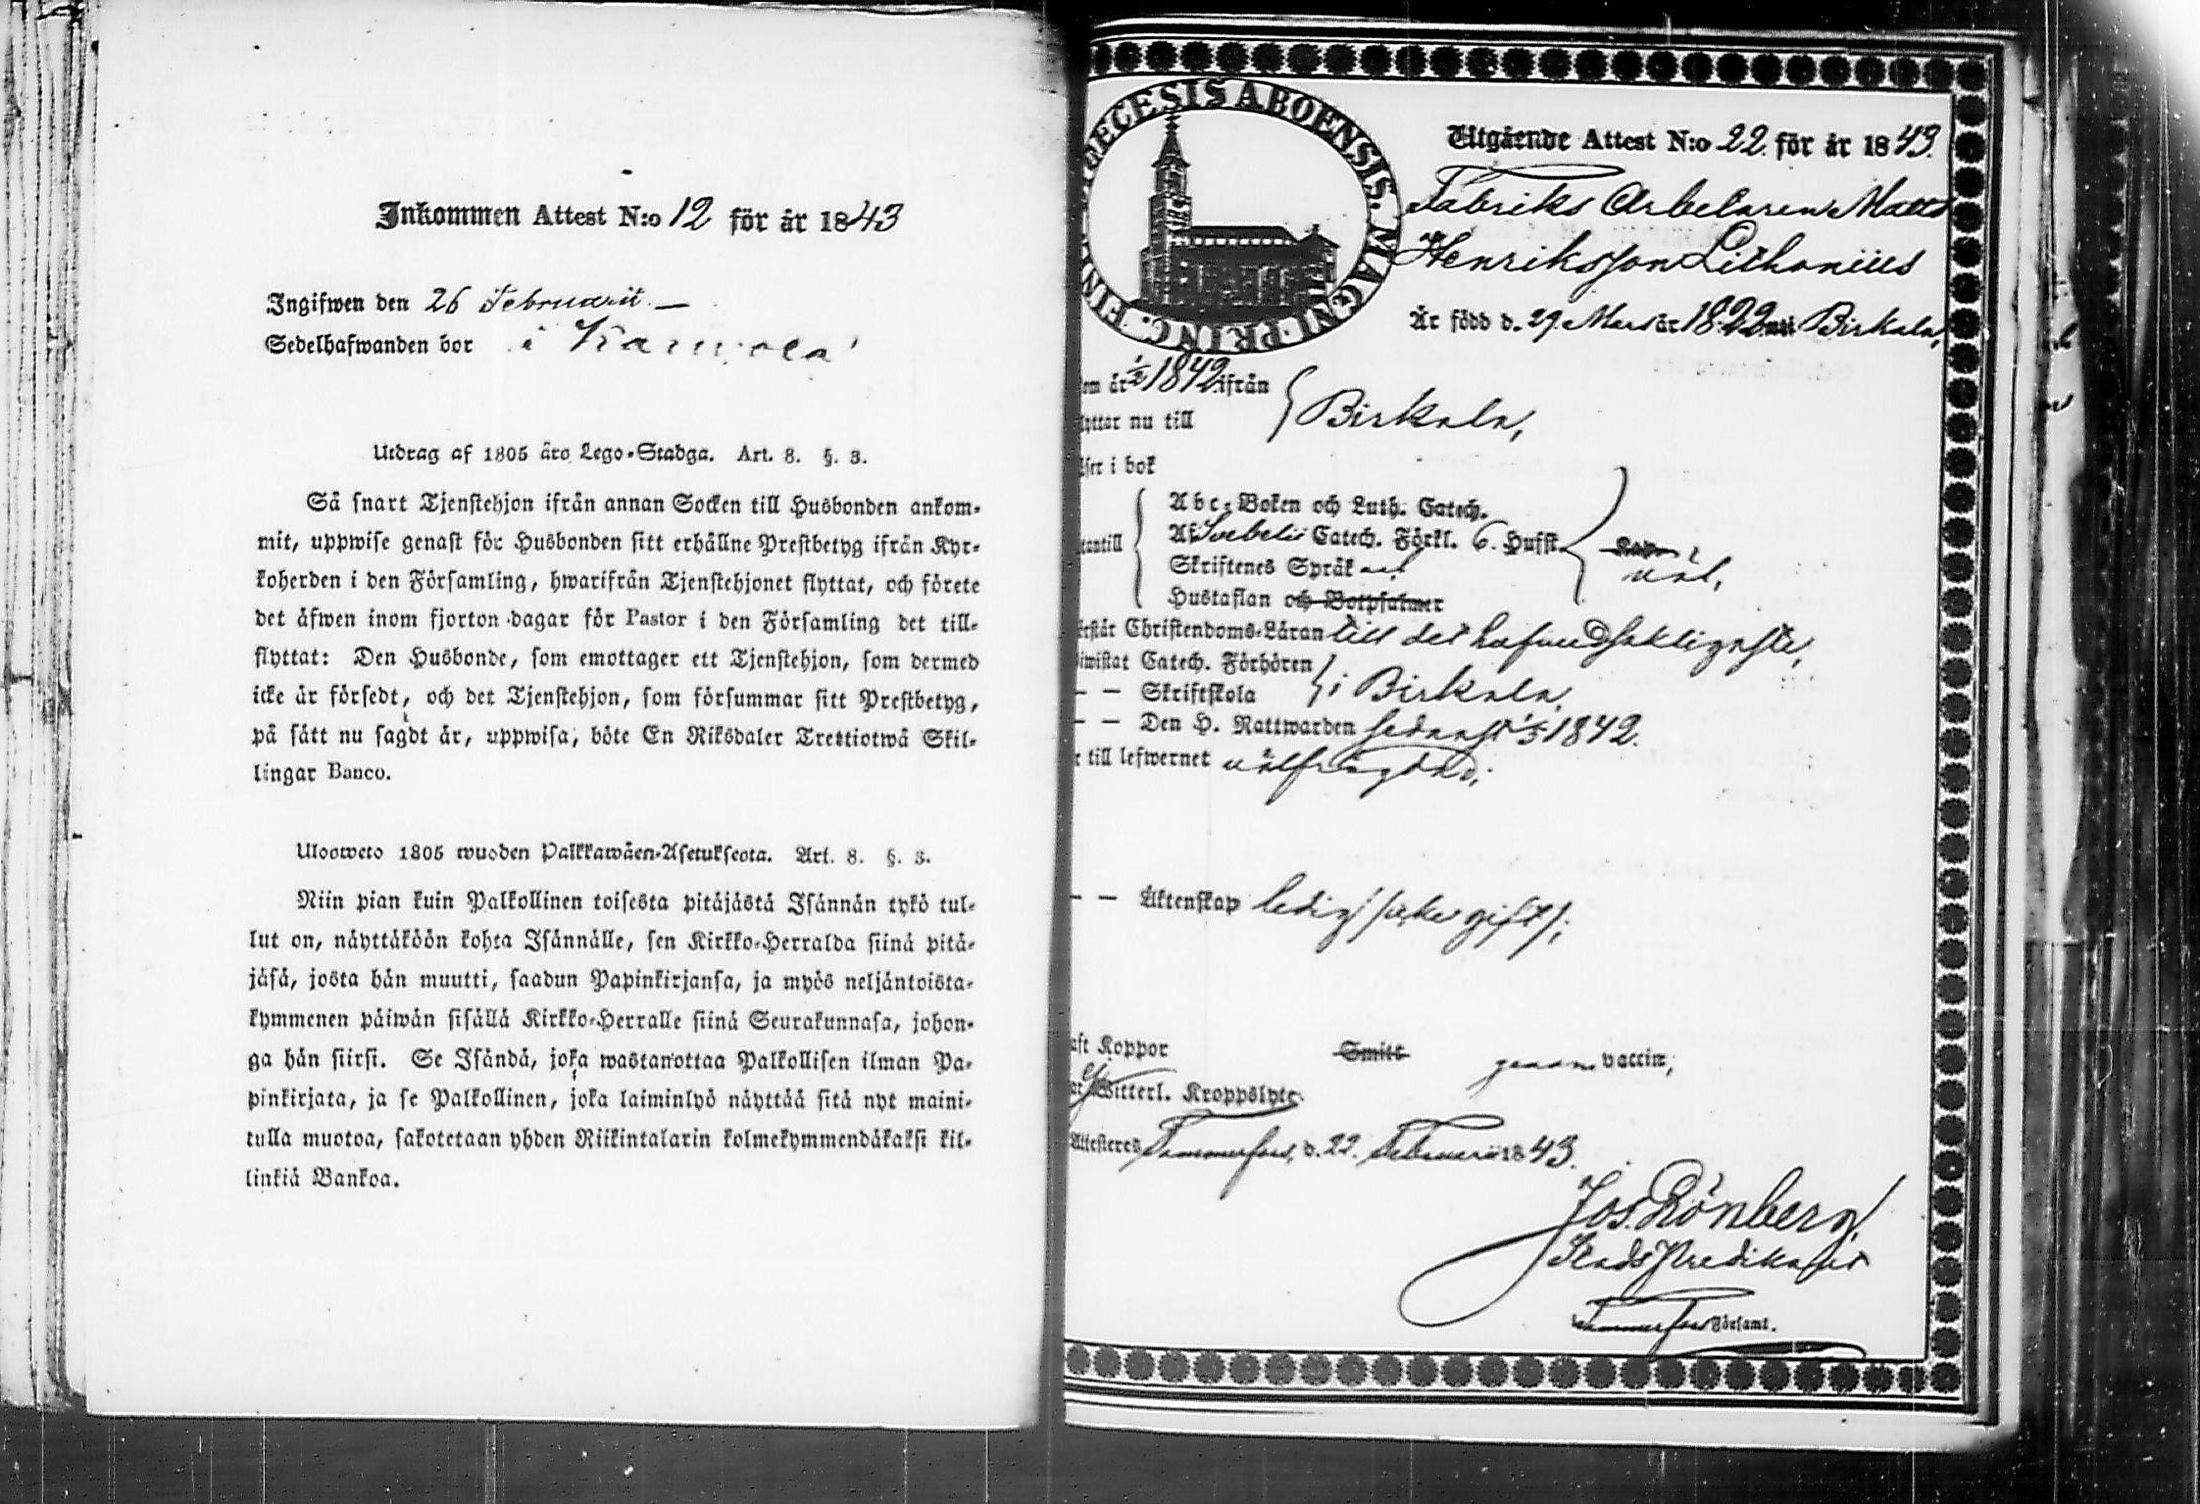 Inkommen Attest N:o 12 för år 1843
Ingifwen den 26 Februarii
Sedelhafwanden bor i
Utdrag af 1805 års Lego-Stadga. Art. 8. §. 3.
Så snart Tjenstehjon ifrån annan Socken till Husbonden ankom-
mit, uppwise genast för Husbonden sitt erhållne Prestbetyg ifrån Kyr-
koherden i den Församling, hwarifrån Tjenstehjonet flyttat, och förete
det äfwen inom fjorton dagar för Pastor i den Församling det till-
flyttat: Den Husbonde, som emottager ett Tjenstehjon, som dermed
icke är försedt, och det Tjenstehjon, som försummar sitt Prestbetyg,
på sätt nu sagdt är, uppwisa, böte En Riksdaler Trettiotwå Skil-
lingar Banco.
Ulosweto 1805 wuoden Palkkawäen-Asetuksesta. Art. 8. §. 3.
Niin pian kuin Palkollinen toisesta pitäjästä Isännän tykö tul-
lut on, näyttäköön kohta Isännälle, sen Kirkko-Herralda siinä pitä-
jäsä, josta hän muutti, saadun Papinkirjansa, ja myös neljäntoista-
kymmenen päiwän sisällä Kirkko-Herralle siinä Seurakunnasa, johon-
ga hän siirsi. Se Isändä, joka wastanottaa Palkollisen ilman Pa-
pinkirjata, ja se Palkollinen, joka laiminlyö näyttää sitä nyt maini-
tulla muotoa, sakotetaan yhden Riikintalarin kolmekymmendäkaksi kil-
linkiä Bankoa.
ABOENSIS. MAGNI. PRINC. FINL
Utgående Attest N:o 22. för år 1843.
Fabriks Arbetaren Matts
Henriksson Lithonius
Är född d. 29 Mars år 1822 uti Birkala,
om år 1842 ifrån
lyttar nu till } Birkala,
ser i bok
Abc-Boken och Luth. Catech.
Af Svebelii Catech. Förkl. 6. Hufst.
Skriftenes Språk väl,
Hustaflan och Botpsalmer
erstår Christendoms-Läran till det hufvudsakligaste,
iwistat Catech. Förhören
– – Skriftskola } i Birkala,
– – Den H. Nattwarden sednast 1842.
r till lefwernet välfrägdad;
– – Äktenskap ledig /: icke gift :/;
aft Koppor Smitt genom vaccin;
ar Witterl. Kroppslyte.
Attesteres Tammerfors, d. 22. Februarii 1843.
Jos. Rönberg,
Stads Predikant
Tammerfors Församl.